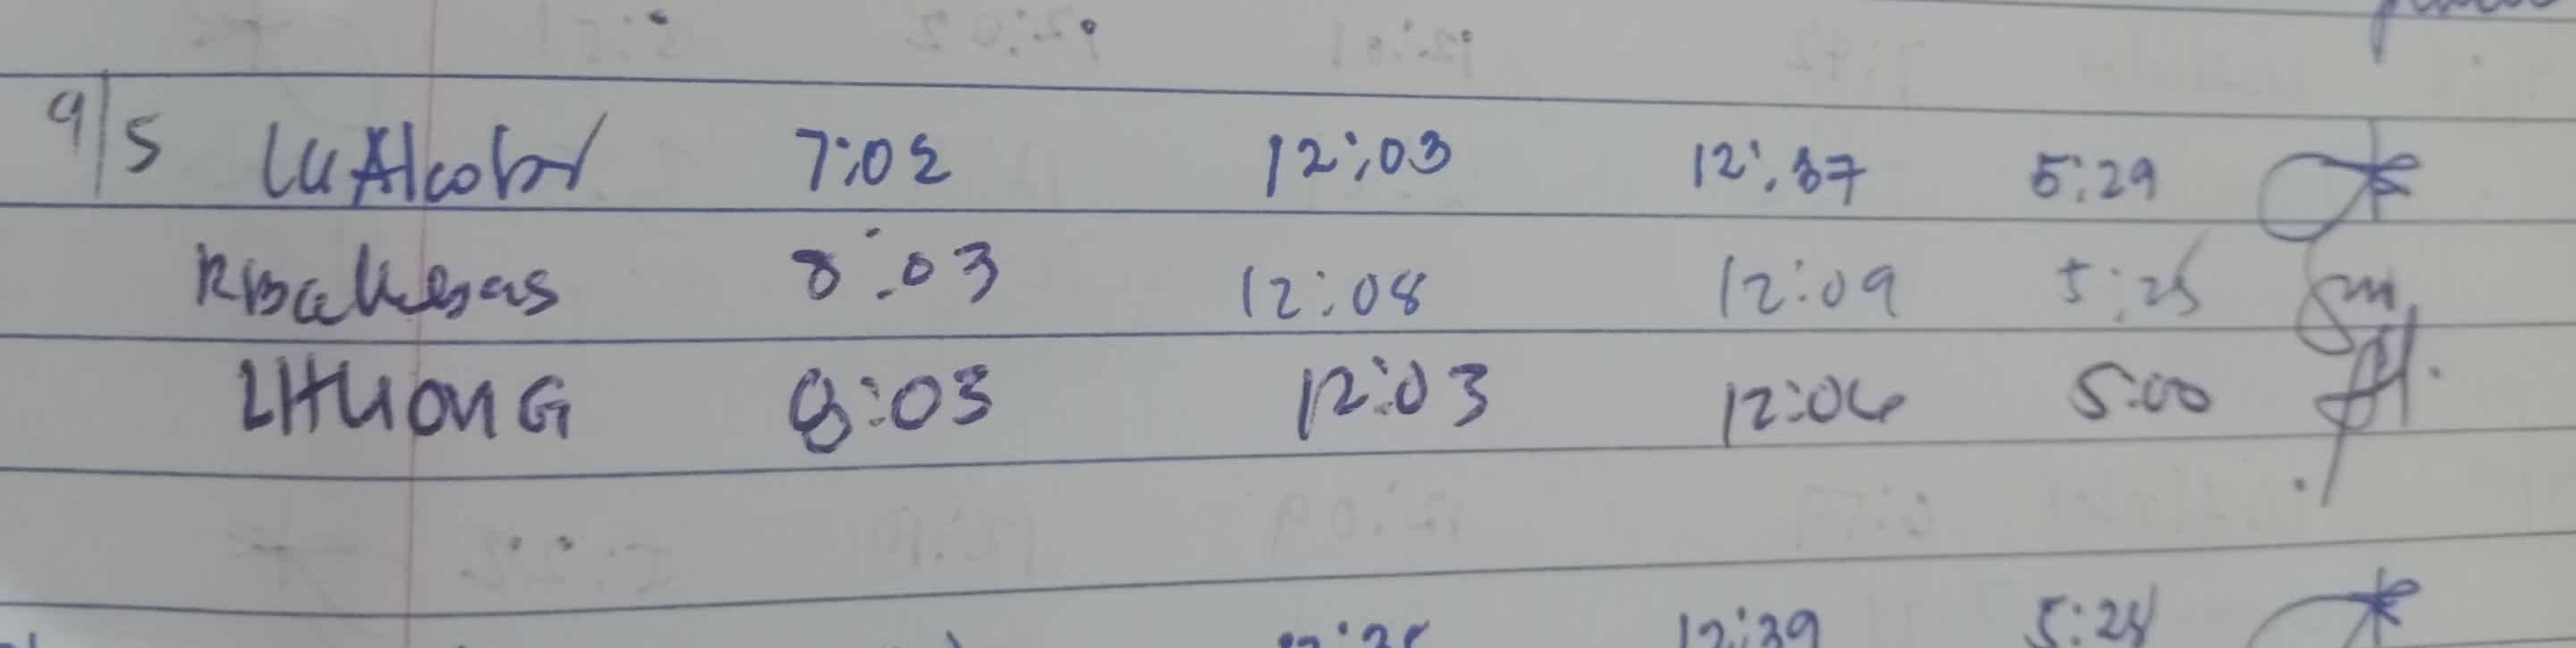 9/5 LU Alcober 7:02 12:03 12:37 5:29
RBakebas 8:03 12:08 12:09 5:25
LHUONG 8:03 12:03 12:06 5:00
12:39 5:24